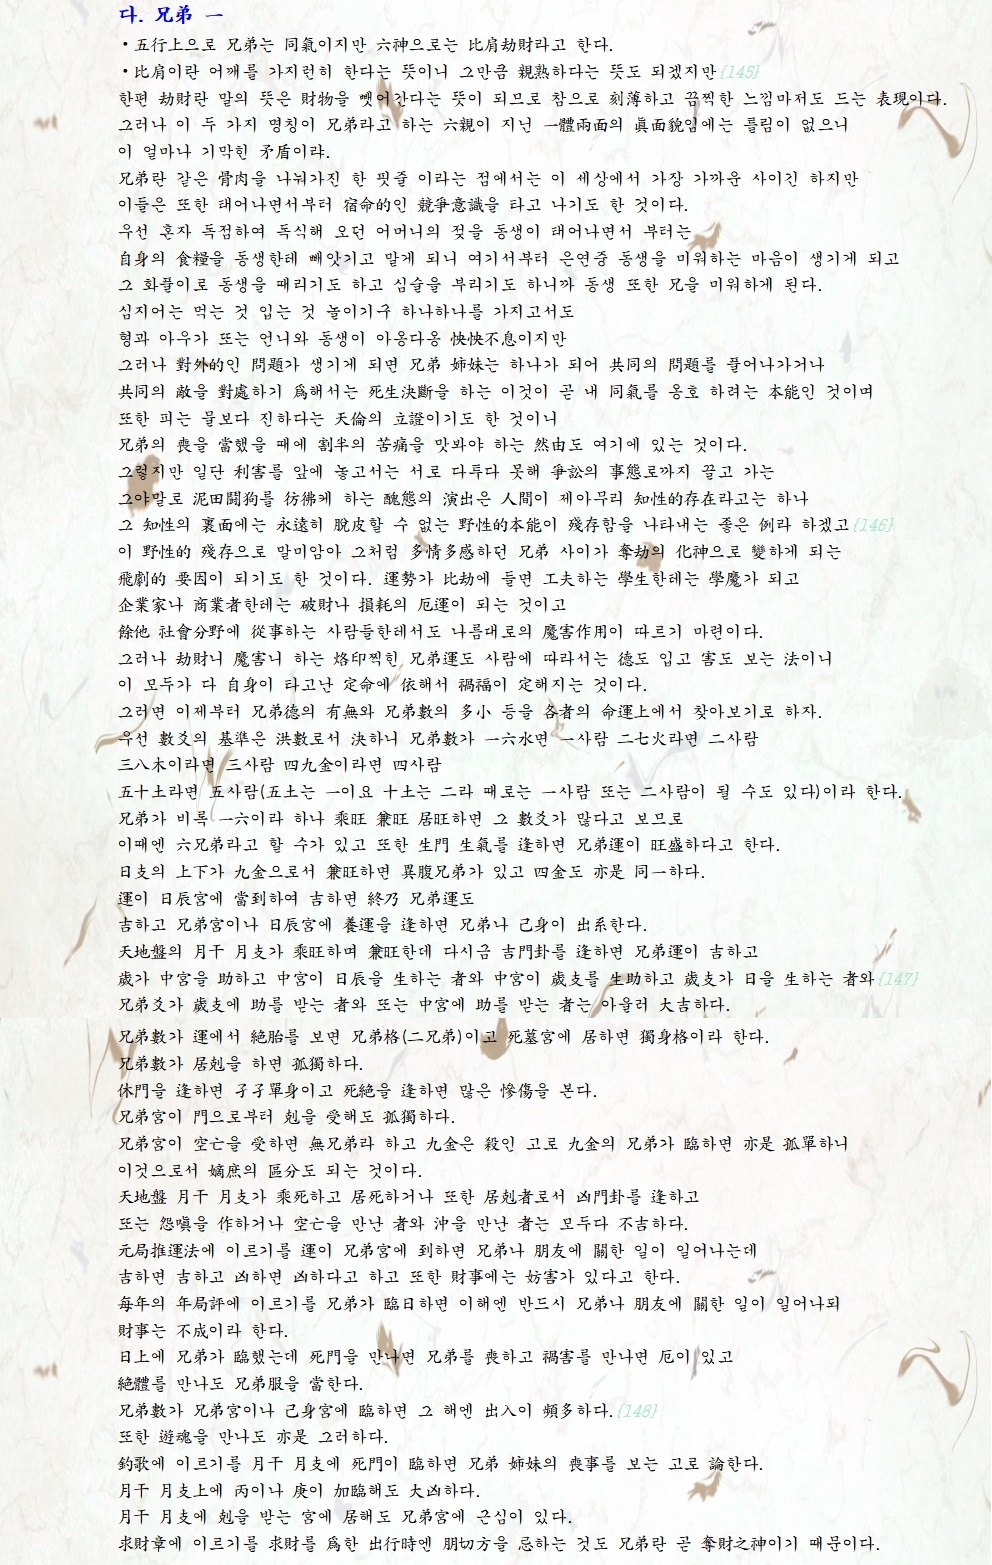 다. 兄弟 一
•五行上으로 兄弟는 同氣이지만 六神으로는 比肩劫財라고 한다.
•比肩이란 어깨를 가지런히 한다는 뜻이니 그만큼 親熟하다는 뜻도 되겠지만{145}
한편 劫財란 말의 뜻은 財物을 뺏어간다는 뜻이 되므로 참으로 刻薄하고 끔찍한 느낌마저도 드는 表現이다.
그러나 이 두 가지 명칭이 兄弟라고 하는 六親이 지닌 一體兩面의 眞面貌임에는 틀림이 없으니
이 얼마나 기막힌 矛盾이랴.
兄弟란 같은 骨肉을 나눠가진 한 핏줄 이라는 점에서는 이 세상에서 가장 가까운 사이긴 하지만
이들은 또한 태어나면서부터 宿命的인 競爭意識을 타고 나기도 한 것이다.
우선 혼자 독점하여 독식해 오던 어머니의 젖을 동생이 태어나면서 부터는
自身의 食糧을 동생한테 빼앗기고 말게 되니 여기서부터 은연중 동생을 미워하는 마음이 생기게 되고
그 화풀이로 동생을 때리기도 하고 심술을 부리기도 하니까 동생 또한 兄을 미워하게 된다.
심지어는 먹는 것 입는 것 놀이기구 하나하나를 가지고서도
형과 아우가 또는 언니와 동생이 아웅다옹 怏怏不息이지만
그러나 對外的인 問題가 생기게 되면 兄弟 姉妹는 하나가 되어 共同의 問題를 풀어나가거나
共同의 敵을 對處하기 爲해서는 死生決斷을 하는 이것이 곧 내 同氣를 옹호 하려는 本能인 것이며
또한 피는 물보다 진하다는 天倫의 立證이기도 한 것이니
兄弟의 喪을 當했을 때에 割半의 苦痛을 맛봐야 하는 然由도 여기에 있는 것이다.
그렇지만 일단 利害를 앞에 놓고서는 서로 다투다 못해 爭訟의 事態로까지 끌고 가는
그야말로 泥田鬪狗를 彷彿케 하는 醜態의 演出은 人間이 제아무리 知性的存在라고는 하나
그 知性의 裏面에는 永遠히 脫皮할 수 없는 野性的本能이 殘存함을 나타내는 좋은 例라 하겠고{146}
이 野性的 殘存으로 말미암아 그처럼 多情多感하던 兄弟 사이가 奪劫의 化神으로 變하게 되는
飛劇的 要因이 되기도 한 것이다. 運勢가 比劫에 들면 工夫하는 學生한테는 學魔가 되고
企業家나 商業者한테는 破財나 損耗의 厄運이 되는 것이고
餘他 社會分野에 從事하는 사람들한테서도 나름대로의 魔害作用이 따르기 마련이다.
그러나 劫財니 魔害니 하는 烙印찍힌 兄弟運도 사람에 따라서는 德도 입고 害도 보는 法이니
이 모두가 다 自身이 타고난 定命에 依해서 禍福이 定해지는 것이다.
그러면 이제부터 兄弟德의 有無와 兄弟數의 多小 등을 各者의 命運上에서 찾아보기로 하자.
우선 數爻의 基準은 洪數로서 決하니 兄弟數가 一六水면 一사람 二七火라면 二사람
三八木이라면 三사람 四九金이라면 四사람
五十土라면 五사람(五土는 一이요 十土는 二라 때로는 一사람 또는 二사람이 될 수도 있다)이라 한다.
兄弟가 비록 一六이라 하나 乘旺 兼旺 居旺하면 그 數爻가 많다고 보므로
이때엔 六兄弟라고 할 수가 있고 또한 生門 生氣를 逢하면 兄弟運이 旺盛하다고 한다.
日支의 上下가 九金으로서 兼旺하면 異腹兄弟가 있고 四金도 亦是 同一하다.
運이 日辰宮에 當到하여 吉하면 終乃 兄弟運도
吉하고 兄弟宮이나 日辰宮에 養運을 逢하면 兄弟나 己身이 出系한다.
天地盤의 月干 月支가 乘旺하며 兼旺한데 다시금 吉門卦를 逢하면 兄弟運이 吉하고
歲가 中宮을 助하고 中宮이 日辰을 生하는 者와 中宮이 歲支를 生助하고 歲支가 日을 生하는 者와{147}
兄弟爻가 歲支에 助를 받는 者와 또는 中宮에 助를 받는 者는 아울러 大吉하다.
兄弟數가 運에서 絶胎를 보면 兄弟格(二兄弟)이고 死墓宮에 居하면 獨身格이라 한다.
兄弟數가 居剋을 하면 孤獨하다.
休門을 逢하면 孑孑單身이고 死絶을 逢하면 많은 慘傷을 본다.
兄弟宮이 門으로부터 剋을 受해도 孤獨하다.
兄弟宮이 空亡을 受하면 無兄弟라 하고 九金은 殺인 고로 九金의 兄弟가 臨하면 亦是 孤單하니
이것으로서 嫡庶의 區分도 되는 것이다.
天地盤 月干 月支가 乘死하고 居死하거나 또한 居剋者로서 凶門卦를 逢하고
또는 怨嗔을 作하거나 空亡을 만난 者와 沖을 만난 者는 모두다 不吉하다.
元局推運法에 이르기를 運이 兄弟宮에 到하면 兄弟나 朋友에 關한 일이 일어나는데
吉하면 吉하고 凶하면 凶하다고 하고 또한 財事에는 妨害가 있다고 한다.
每年의 年局評에 이르기를 兄弟가 臨日하면 이해엔 반드시 兄弟나 朋友에 關한 일이 일어나되
財事는 不成이라 한다.
日上에 兄弟가 臨했는데 死門을 만나면 兄弟를 喪하고 禍害를 만나면 厄이 있고
絶體를 만나도 兄弟服을 當한다.
兄弟數가 兄弟宮이나 己身宮에 臨하면 그 해엔 出入이 頻多하다.{148}
또한 遊魂을 만나도 亦是 그러하다.
釣歌에 이르기를 月干 月支에 死門이 臨하면 兄弟 姉妹의 喪事를 보는 고로 論한다.
月干 月支上에 丙이나 庚이 加臨해도 大凶하다.
月干 月支에 剋을 받는 宮에 居해도 兄弟宮에 근심이 있다.
求財章에 이르기를 求財를 爲한 出行時엔 朋切方을 忌하는 것도 兄弟란 곧 奪財之神이기 때문이다.